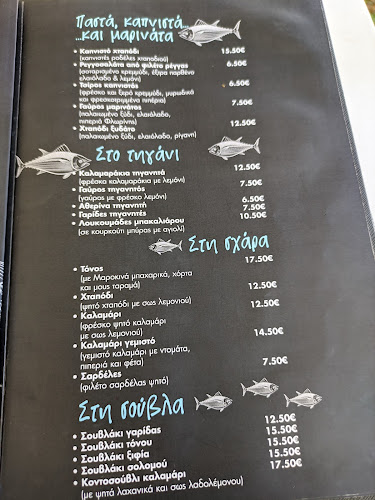 Παστά, καπνιστά
...και μαρινάτα
• Καπνιστό χταπόδι 15.50€
(καπνιστές ροδέλες χταποδιού)
• Ρεγγοσαλάτα από φιλέτο ρέγγας 6.50€
(σοταρισμένα κρεμμύδι, έξτρα παρθένο
ελαιόλαδο & λεμόνι)
• Τσίρος καπνιστός 6.50€
(φρέσκο και ξερό κρεμμύδι, μυρωδικά
και φρεσκοτριμμένα πιπέρια)
• Γαύρος μαρινάτος 7.50€
(παλαιωμένο ξύδι, ελαιόλαδο,
πιπεριά Φλωρίνης)
• Χταπόδι ξυδάτο 12.50€
(παλαιωμένο ξύδι, ελαιόλαδο, ρίγανη)
Στο τηγάνι
• Καλαμαράκια τηγανητά 12.50€
(φρέσκα καλαμαράκια με λεμόνι)
• Γαύρος τηγανητός 7.50€
(γαύρος με φρέσκο λεμόνι)
• Αθερίνα τηγανητή 6.50€
• Γαρίδες τηγανητές 7.50€
• Λουκουμάδες μπακαλιάρου 10.50€
(σε κουρκούτι μπύρας με αγιολί)
Στη σχάρα
• Τόνος 17.50€
(με Μαροκινά μπαχαρικά, χόρτα
και μους ταραμά)
• Χταπόδι 12.50€
(ψητό χταπόδι με σως λεμονιού)
• Καλαμάρι 12.50€
(φρέσκο ψητό καλαμάρι
με σως λεμονιού)
• Καλαμάρι γεμιστό 14.50€
(γεμιστό καλαμάρι με ντομάτα,
πιπεριά και φέτα)
• Σαρδέλες 7.50€
(φιλέτο σαρδέλας ψητό)
Στη σούβλα
• Σουβλάκι γαρίδας 12.50€
• Σουβλάκι τόνου 15.50€
• Σουβλάκι ξιφία 15.50€
• Σουβλάκι σολομού 15.50€
• Κοντοσούβλι καλαμάρι 17.50€
(με ψητά λαχανικά και σως λαδολέμονου)